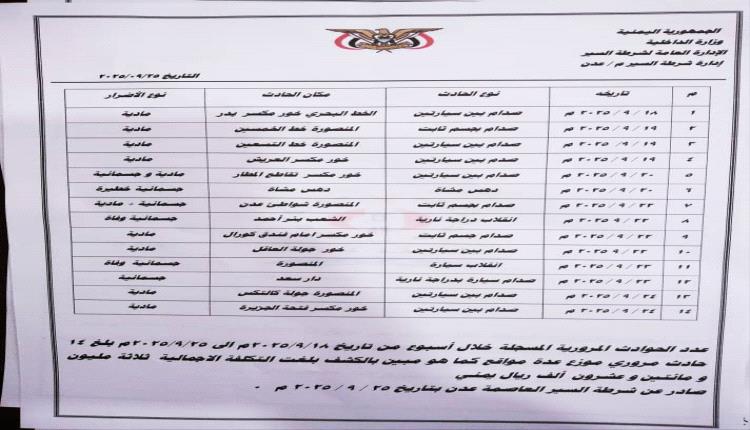 الجمهورية اليمنية
وزارة الداخلية
الإدارة العامة لشرطة السير
إدارة شرطة السير م / عدن
التاريخ ٢٠٢٥/٠٩/٢٥
م تاريخه نوع الحادث مكان الحادث نوع الأضرار
١ ١٨ / ٩ / ٢٠٢٥ م صدام بين سيارتين الخط البحري خور مكسر بدر مادية
٢ ١٩ / ٩ / ٢٠٢٥ م صدام بجسم ثابت المنصورة خط الخمسين مادية
٣ ١٩ / ٩ / ٢٠٢٥ م صدام بين سيارتين المنصورة خط التسعين مادية
٤ ١٩ / ٩ / ٢٠٢٥ م صدام بين سيارتين خور مكسر العريش مادية
٥ ٢٠ / ٩ / ٢٠٢٥ م صدام بين سيارتين خور مكسر تقاطع المطار مادية و جسمانية
٦ ٢٠ / ٩ / ٢٠٢٥ م دهس مشاة دهس مشاة جسمانية خطيرة
٧ ٢٢ / ٩ / ٢٠٢٥ م صدام بجسم ثابت المنصورة شواطئ عدن جسمانية - مادية
٨ ٢٣ / ٩ / ٢٠٢٥ م انقلاب دراجة نارية الشعب بئر أحمد جسمانية وفاة
٩ ٢٣ / ٩ / ٢٠٢٥ م صدام جسم ثابت خور مكسر امام فندق كورال مادية
١٠ ٢٣ / ٩ / ٢٠٢٥ م صدام بين سيارتين خور جولة العاقل مادية
١١ ٢٣ / ٩ / ٢٠٢٥ م انقلاب سيارة المنصورة جسمانية وفاة
١٢ ٢٣ / ٩ / ٢٠٢٥ م صدام سيارة بدراجة نارية دار سعد جسمانية
١٣ ٢٤ / ٩ / ٢٠٢٥ م صدام بين سيارتين المنصورة جولة كالتكس مادية
١٤ ٢٤ / ٩ / ٢٠٢٥ م صدام بين سيارتين خور مكسر فتحة الجزيرة مادية
عدد الحوادث المرورية المسجلة خلال أسبوع من تاريخ ٢٠٢٥/٩/١٨م الى ٢٠٢٥/٩/٢٥م بلغ ١٤
حادث مروري موزع عدة مواقع كما هو مبين بالكشف بلغت التكلفة الاجمالية ثلاثة مليون
و مائتين و عشرون ألف ريال يمني
صادر عن شرطة السير العاصمة عدن بتاريخ ٢٥ / ٩ / ٢٠٢٥ م .